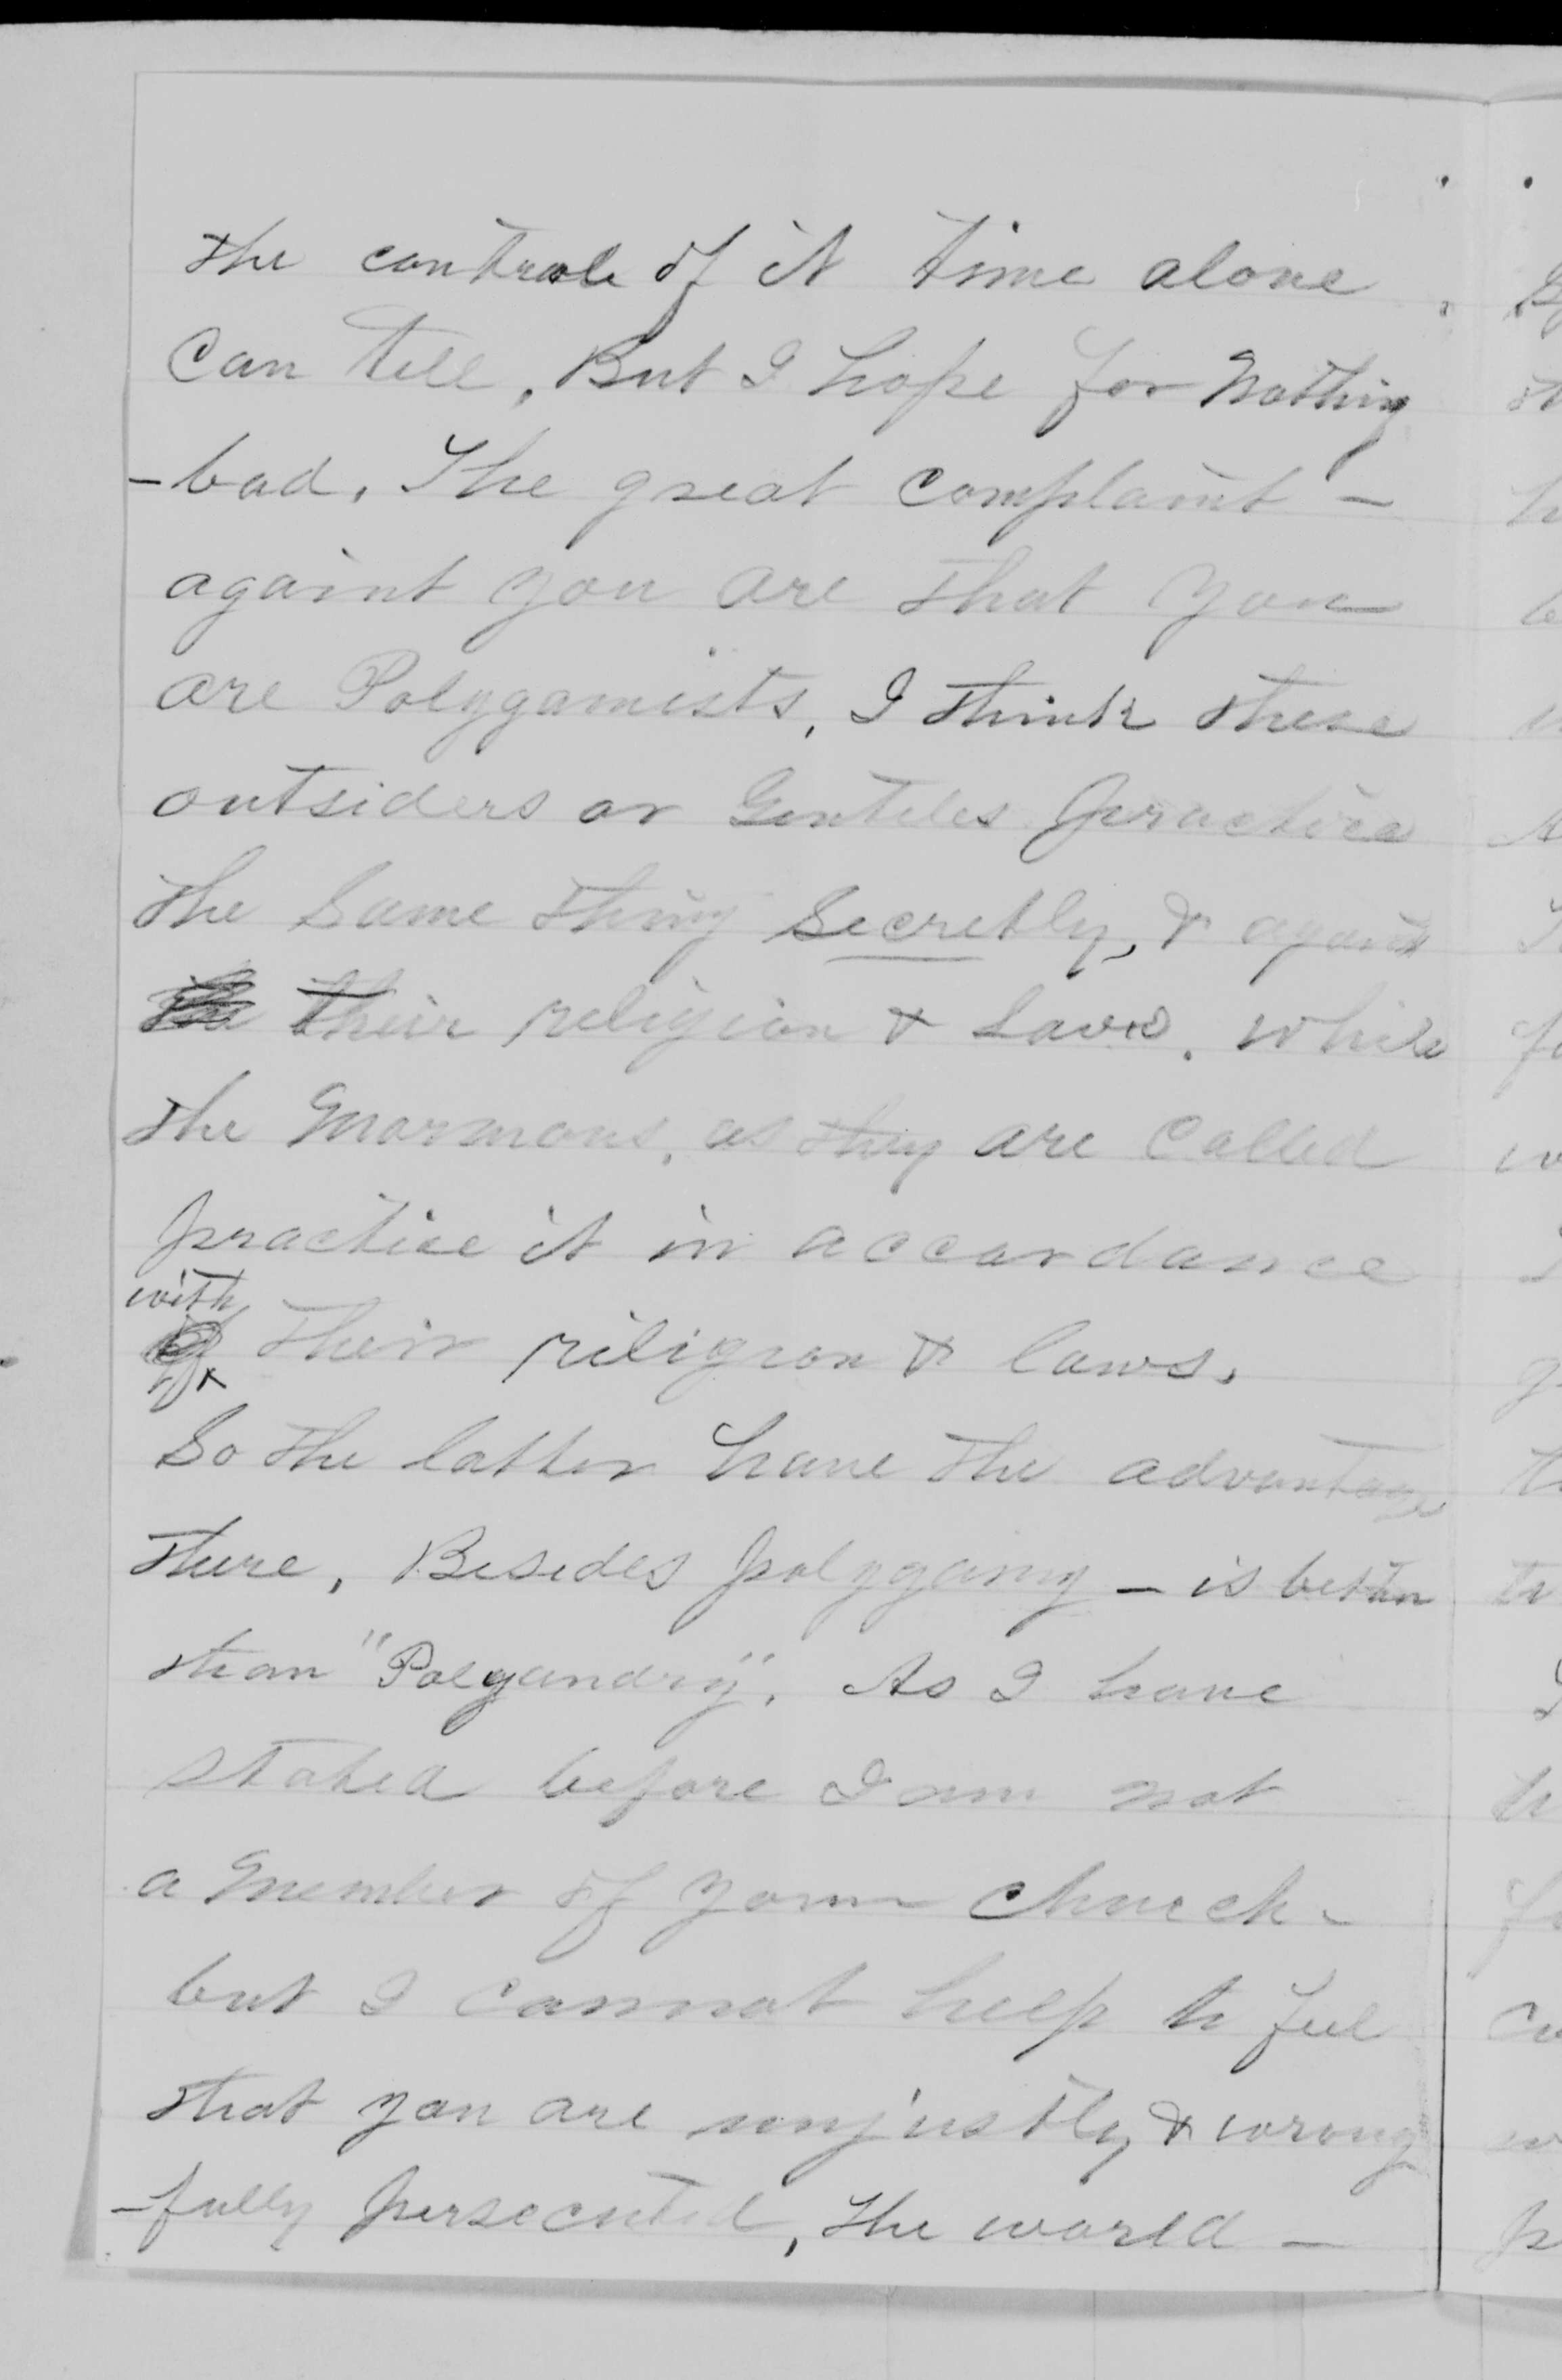 the controle of it time alone
Can tell, But I hope for Nothing
-bad. The great Complaint -
againt you are that you
are Polygamists, I think these
outsiders or Gentiles practice
the Same thing Secretly, & against
their religion & Laws. while
the Mormons, as they are Called
practice it in accordance
with
their riligion & laws.
So the latter have the advantage
there, Besides polygamy - is better
than "Polyandry". As I have
stated before I am not
a Member of your Church -
but I cannot help to feel
that you are unjustly & wrong
-fully persecuted, the world -